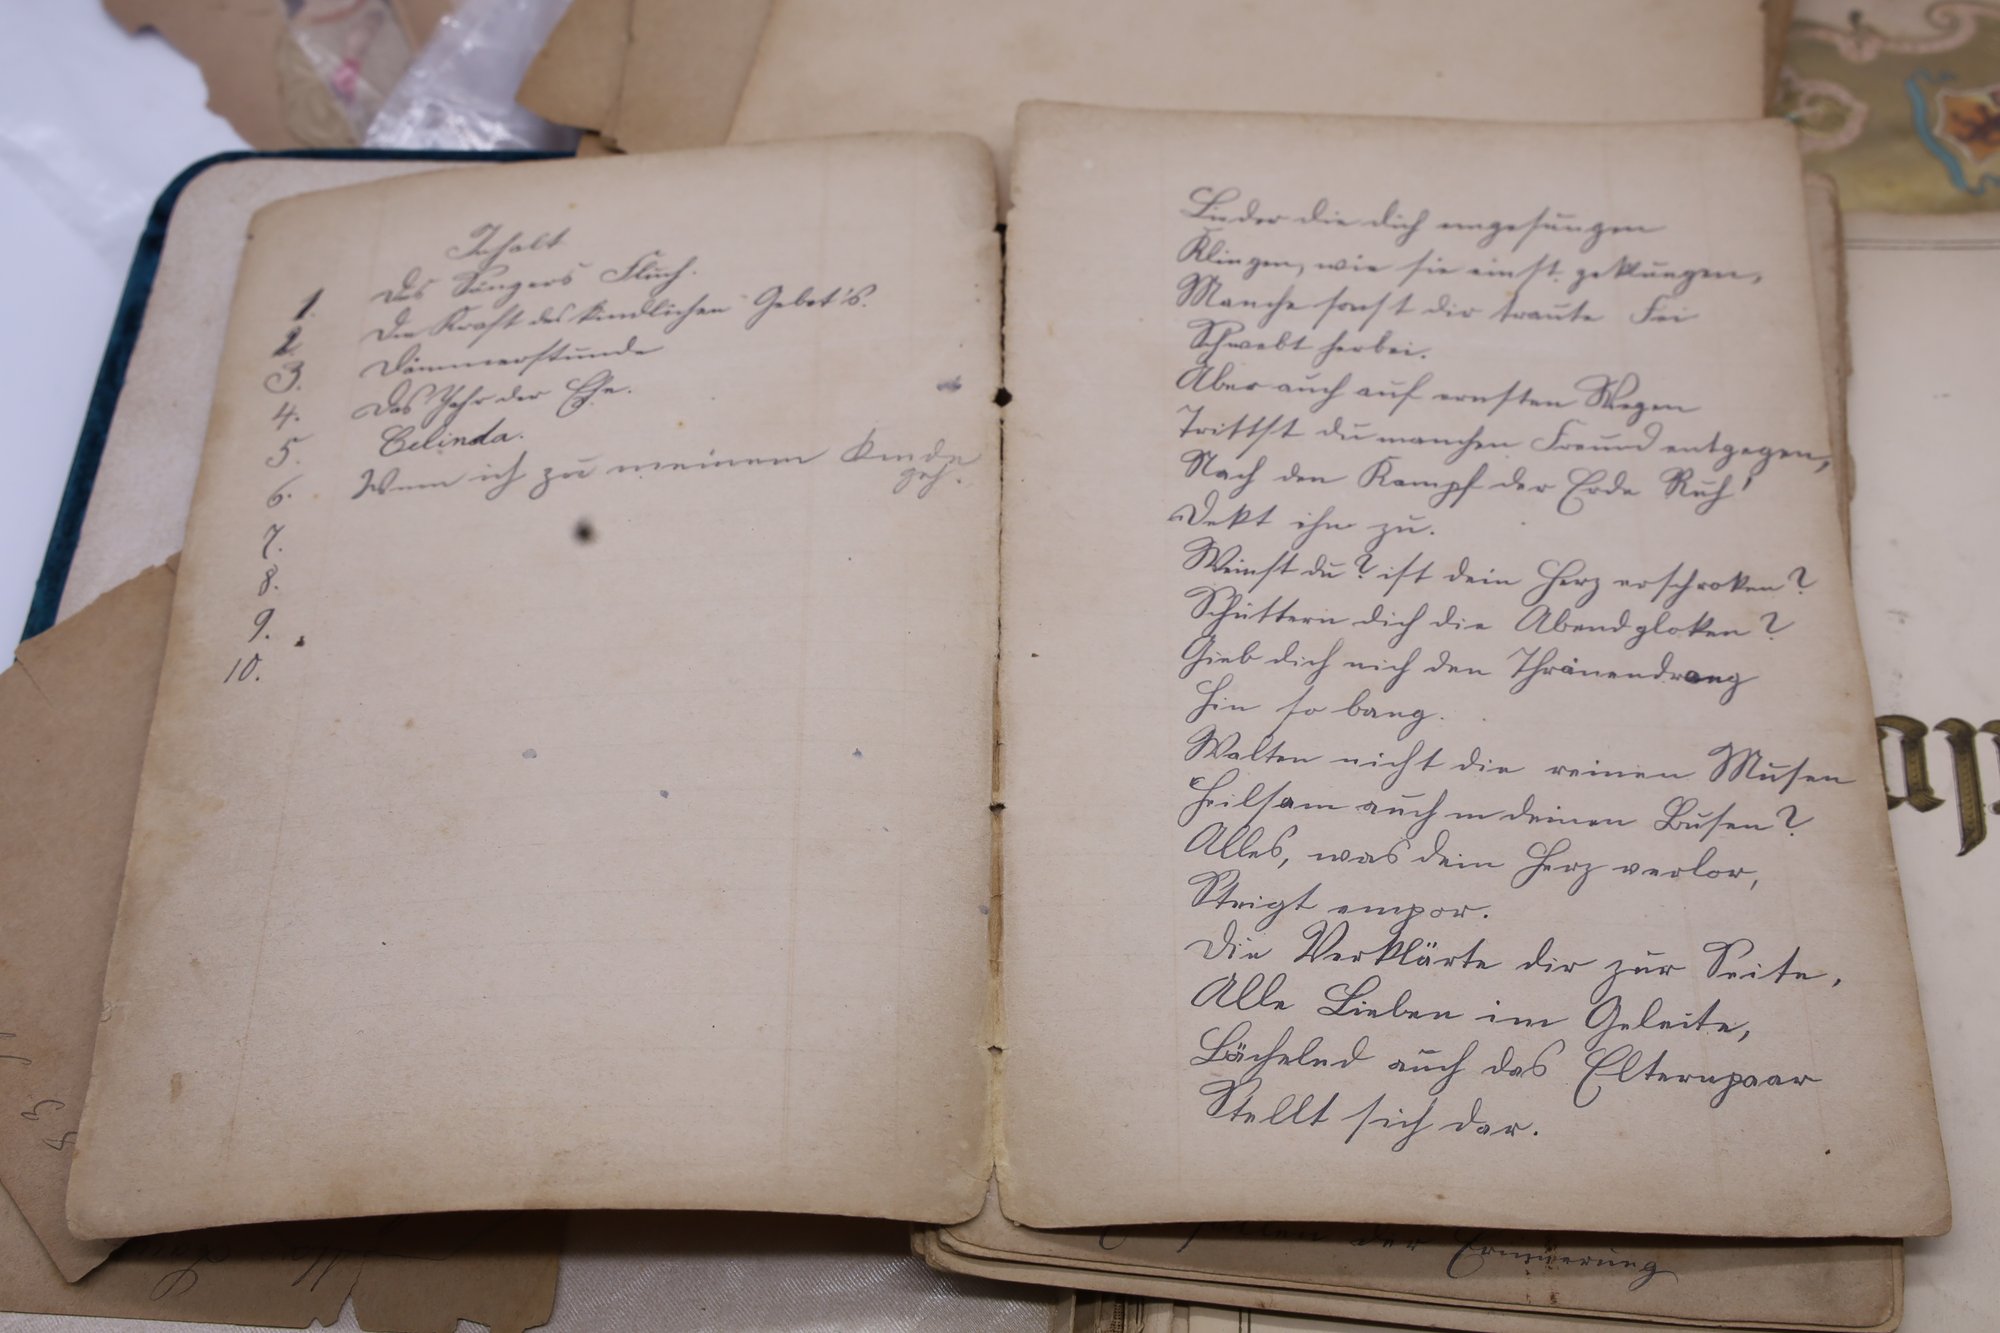 Inhalt
1. Des Sängers Fluch.
2. Die Kraft des kindlichen Gebet's.
3. Dämmerstunde
4. Das Jahr der Ehe.
5. Celinda.
6. Wenn ich zu meinem Kinde
geh.
7.
8.
9.
10.
Lieder die dich umgesungen
Klingen, wie sie einst geklungen,
Manche sonst dir traute Fei
Schwebt herbei.
Aber auch auf ernsten Wegen
Trittst du manchen Freund entgegen,
Nach den Kampf der Erde Ruh'
Dekt ihn zu.
Weinst du? ist dein Herz erschroken?
Schüttern dich die Abendgloken?
Gieb dich nich den Thränendrang
Hin so bang.
Walten nicht die reinen Musen
Heilsam auch in deinen Busen?
Alles, was dein Herz verlor,
Steigt empor.
Die Verklärte dir zur Seite,
Alle Lieben im Geleite,
Lächelnd auch das Elternpaar
Stellt sich dar.
der Erinnerung